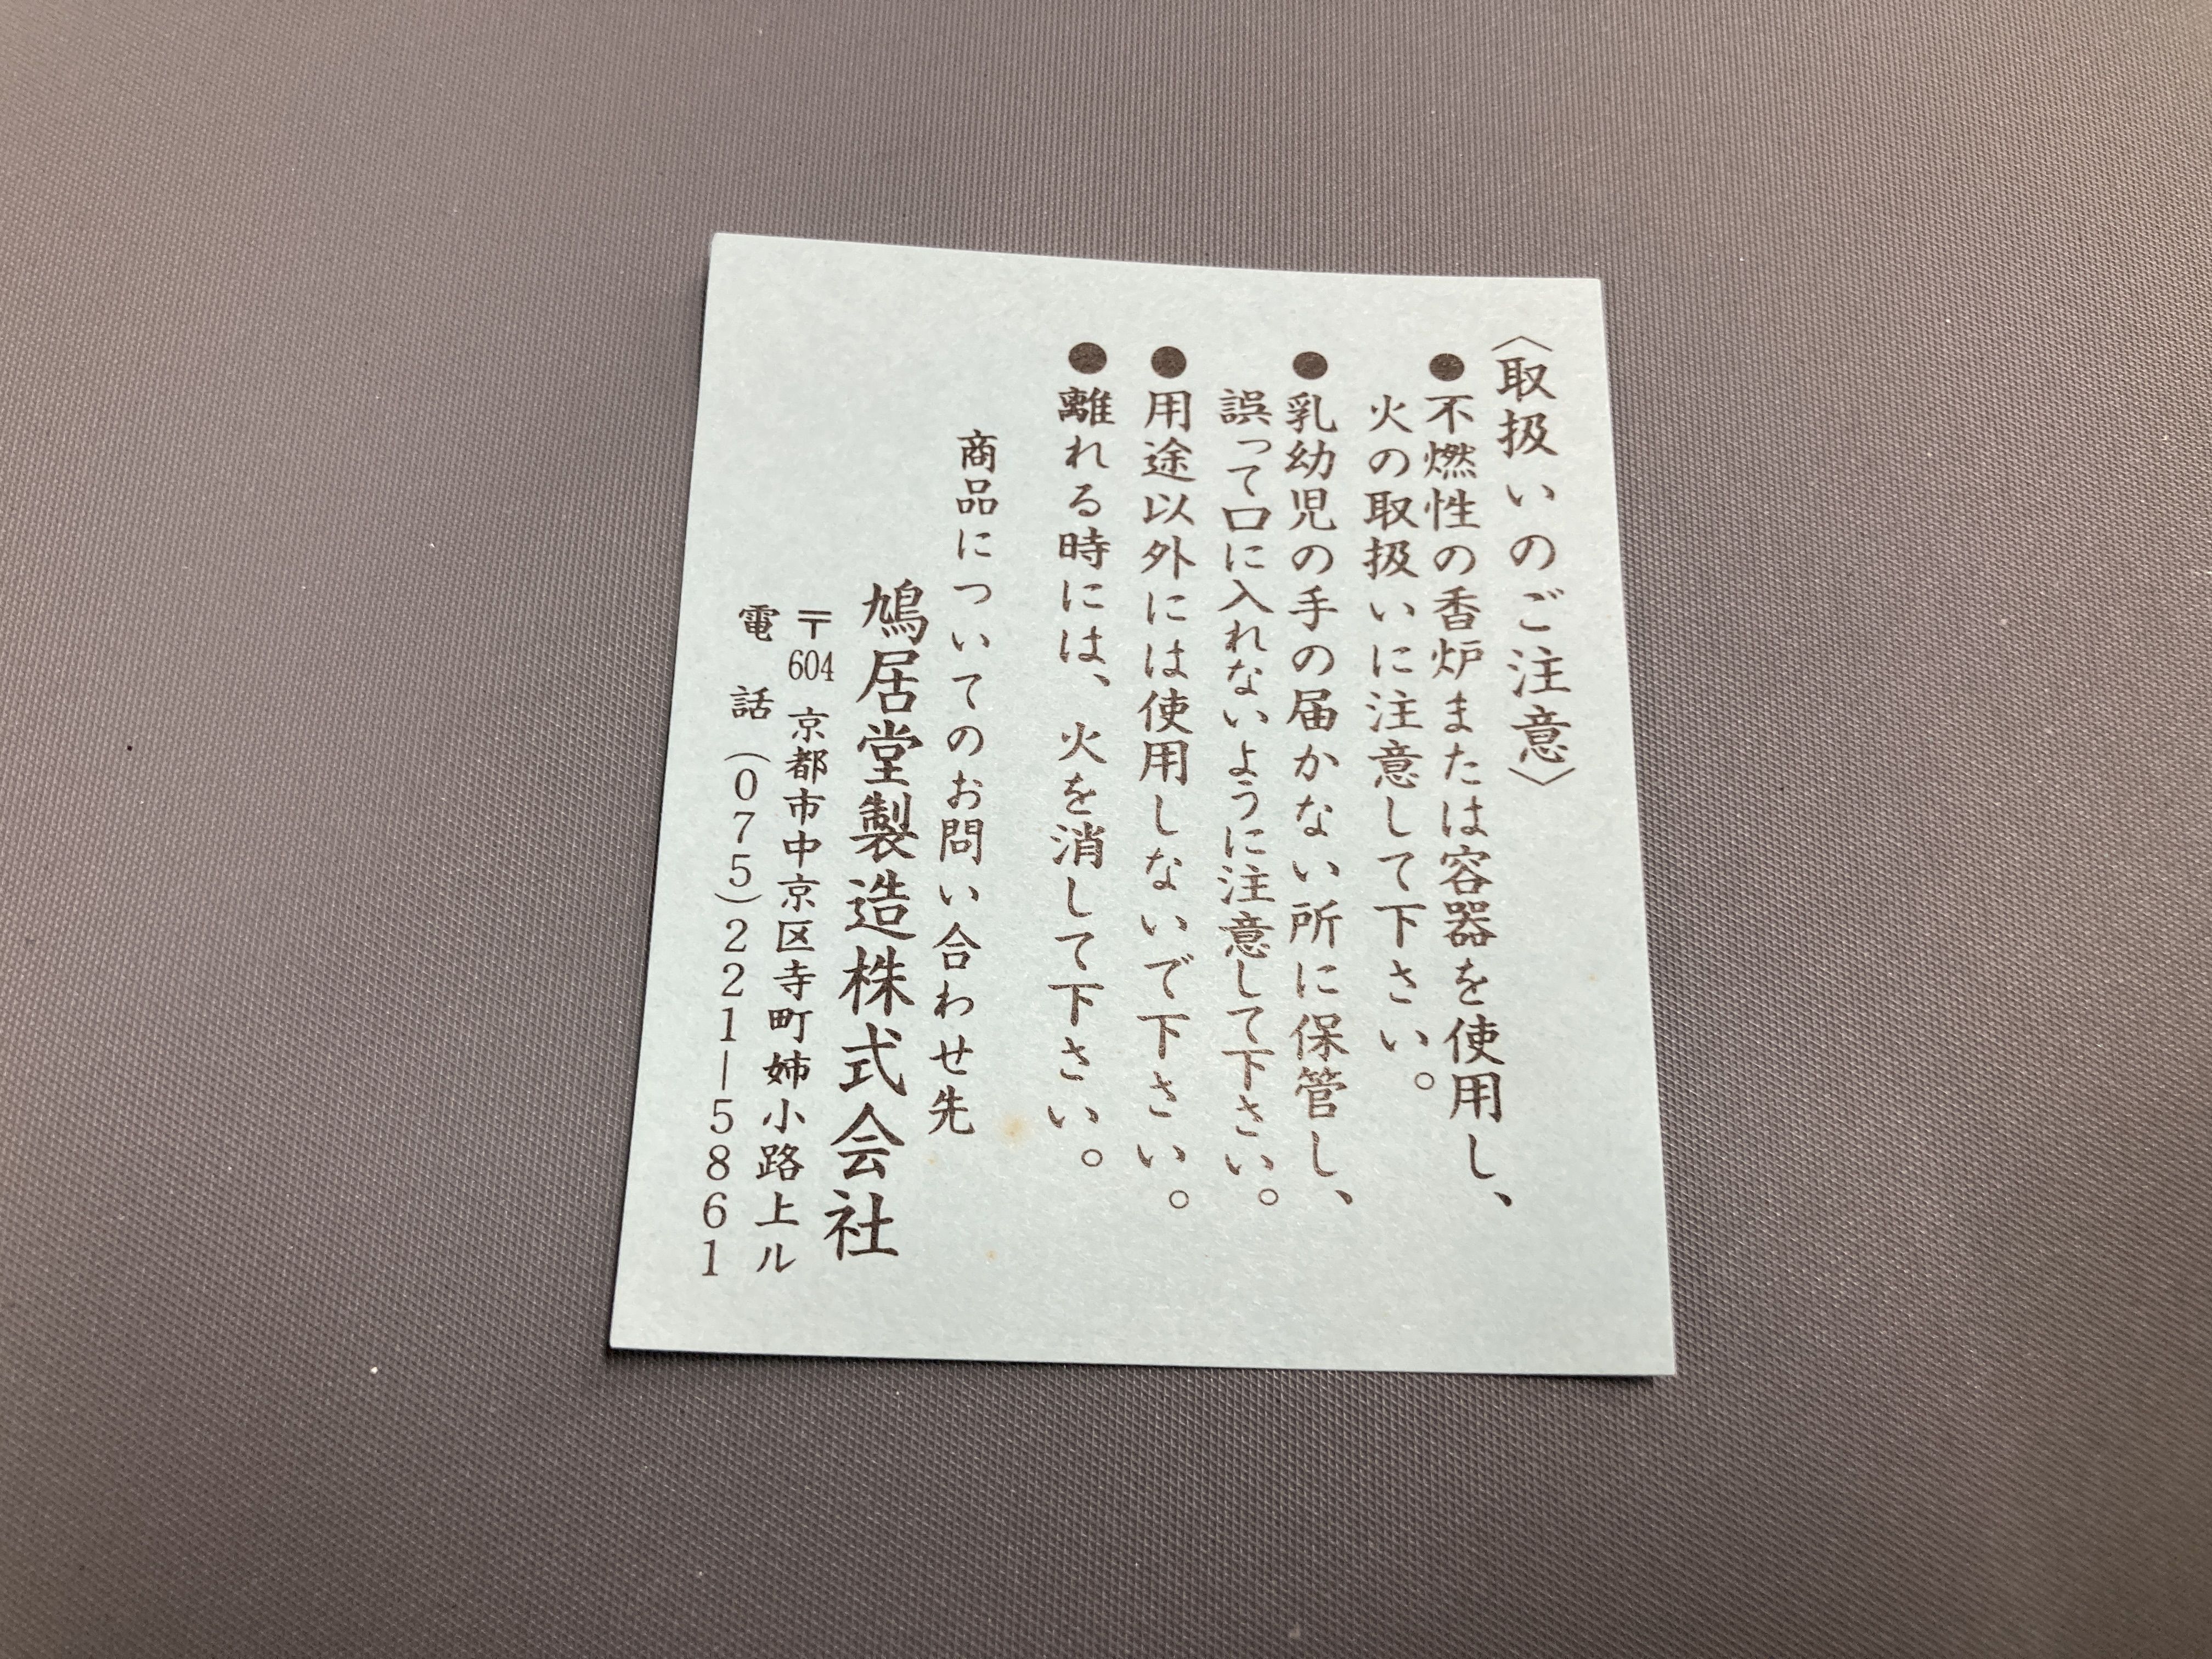 〈取扱いのご注意〉
●不燃性の香炉または容器を使用し、
火の取扱いに注意して下さい。
●乳幼児の手の届かない所に保管し、
誤って口に入れないように注意して下さい。
●用途以外には使用しないで下さい。
●離れる時には、火を消して下さい。
商品についてのお問い合わせ先
鳩居堂製造株式会社
〒604 京都市中京区寺町姉小路上ル
電話(075)221-5861